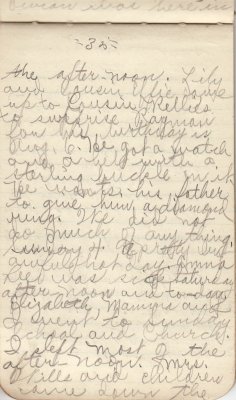 was here in
- 35 -
the after noon. Lily
and cousin Effie came
up to cousin Nellies
to surprise Rayman
for his birthday is
Aug. 6. He got a watch
and a belt with a
starling buckle in it
he wants his father
to give him a diamond
ring. We did not
do much of any thing.
Sunday 4.
day. Anna
was Saturday
after noon and to-day.
Elizabeth, Mamma and
I went to Sunday
School and church.
I slept most of the
after noon. Mrs.
Mills and children
came down the